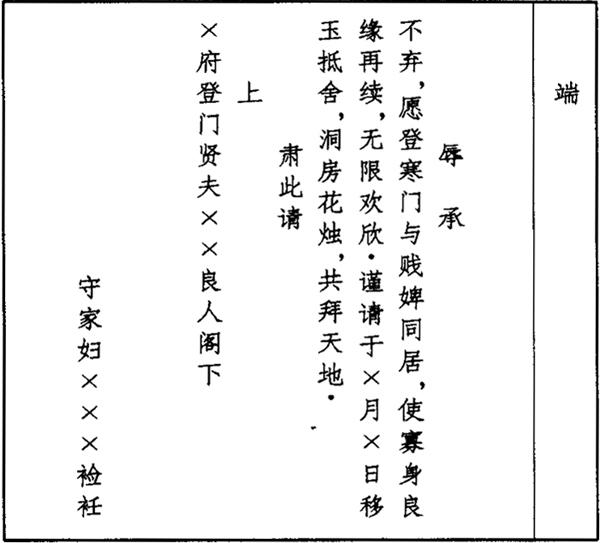 端
辱承
不弃，愿登寒门与贱婢同居，使寡身良
缘再续，无限欢欣。谨请于×月×日移
玉抵舍，洞房花烛，共拜天地。
肃此请
上
×府登门贤夫××良人阁下
守家妇×××裣衽